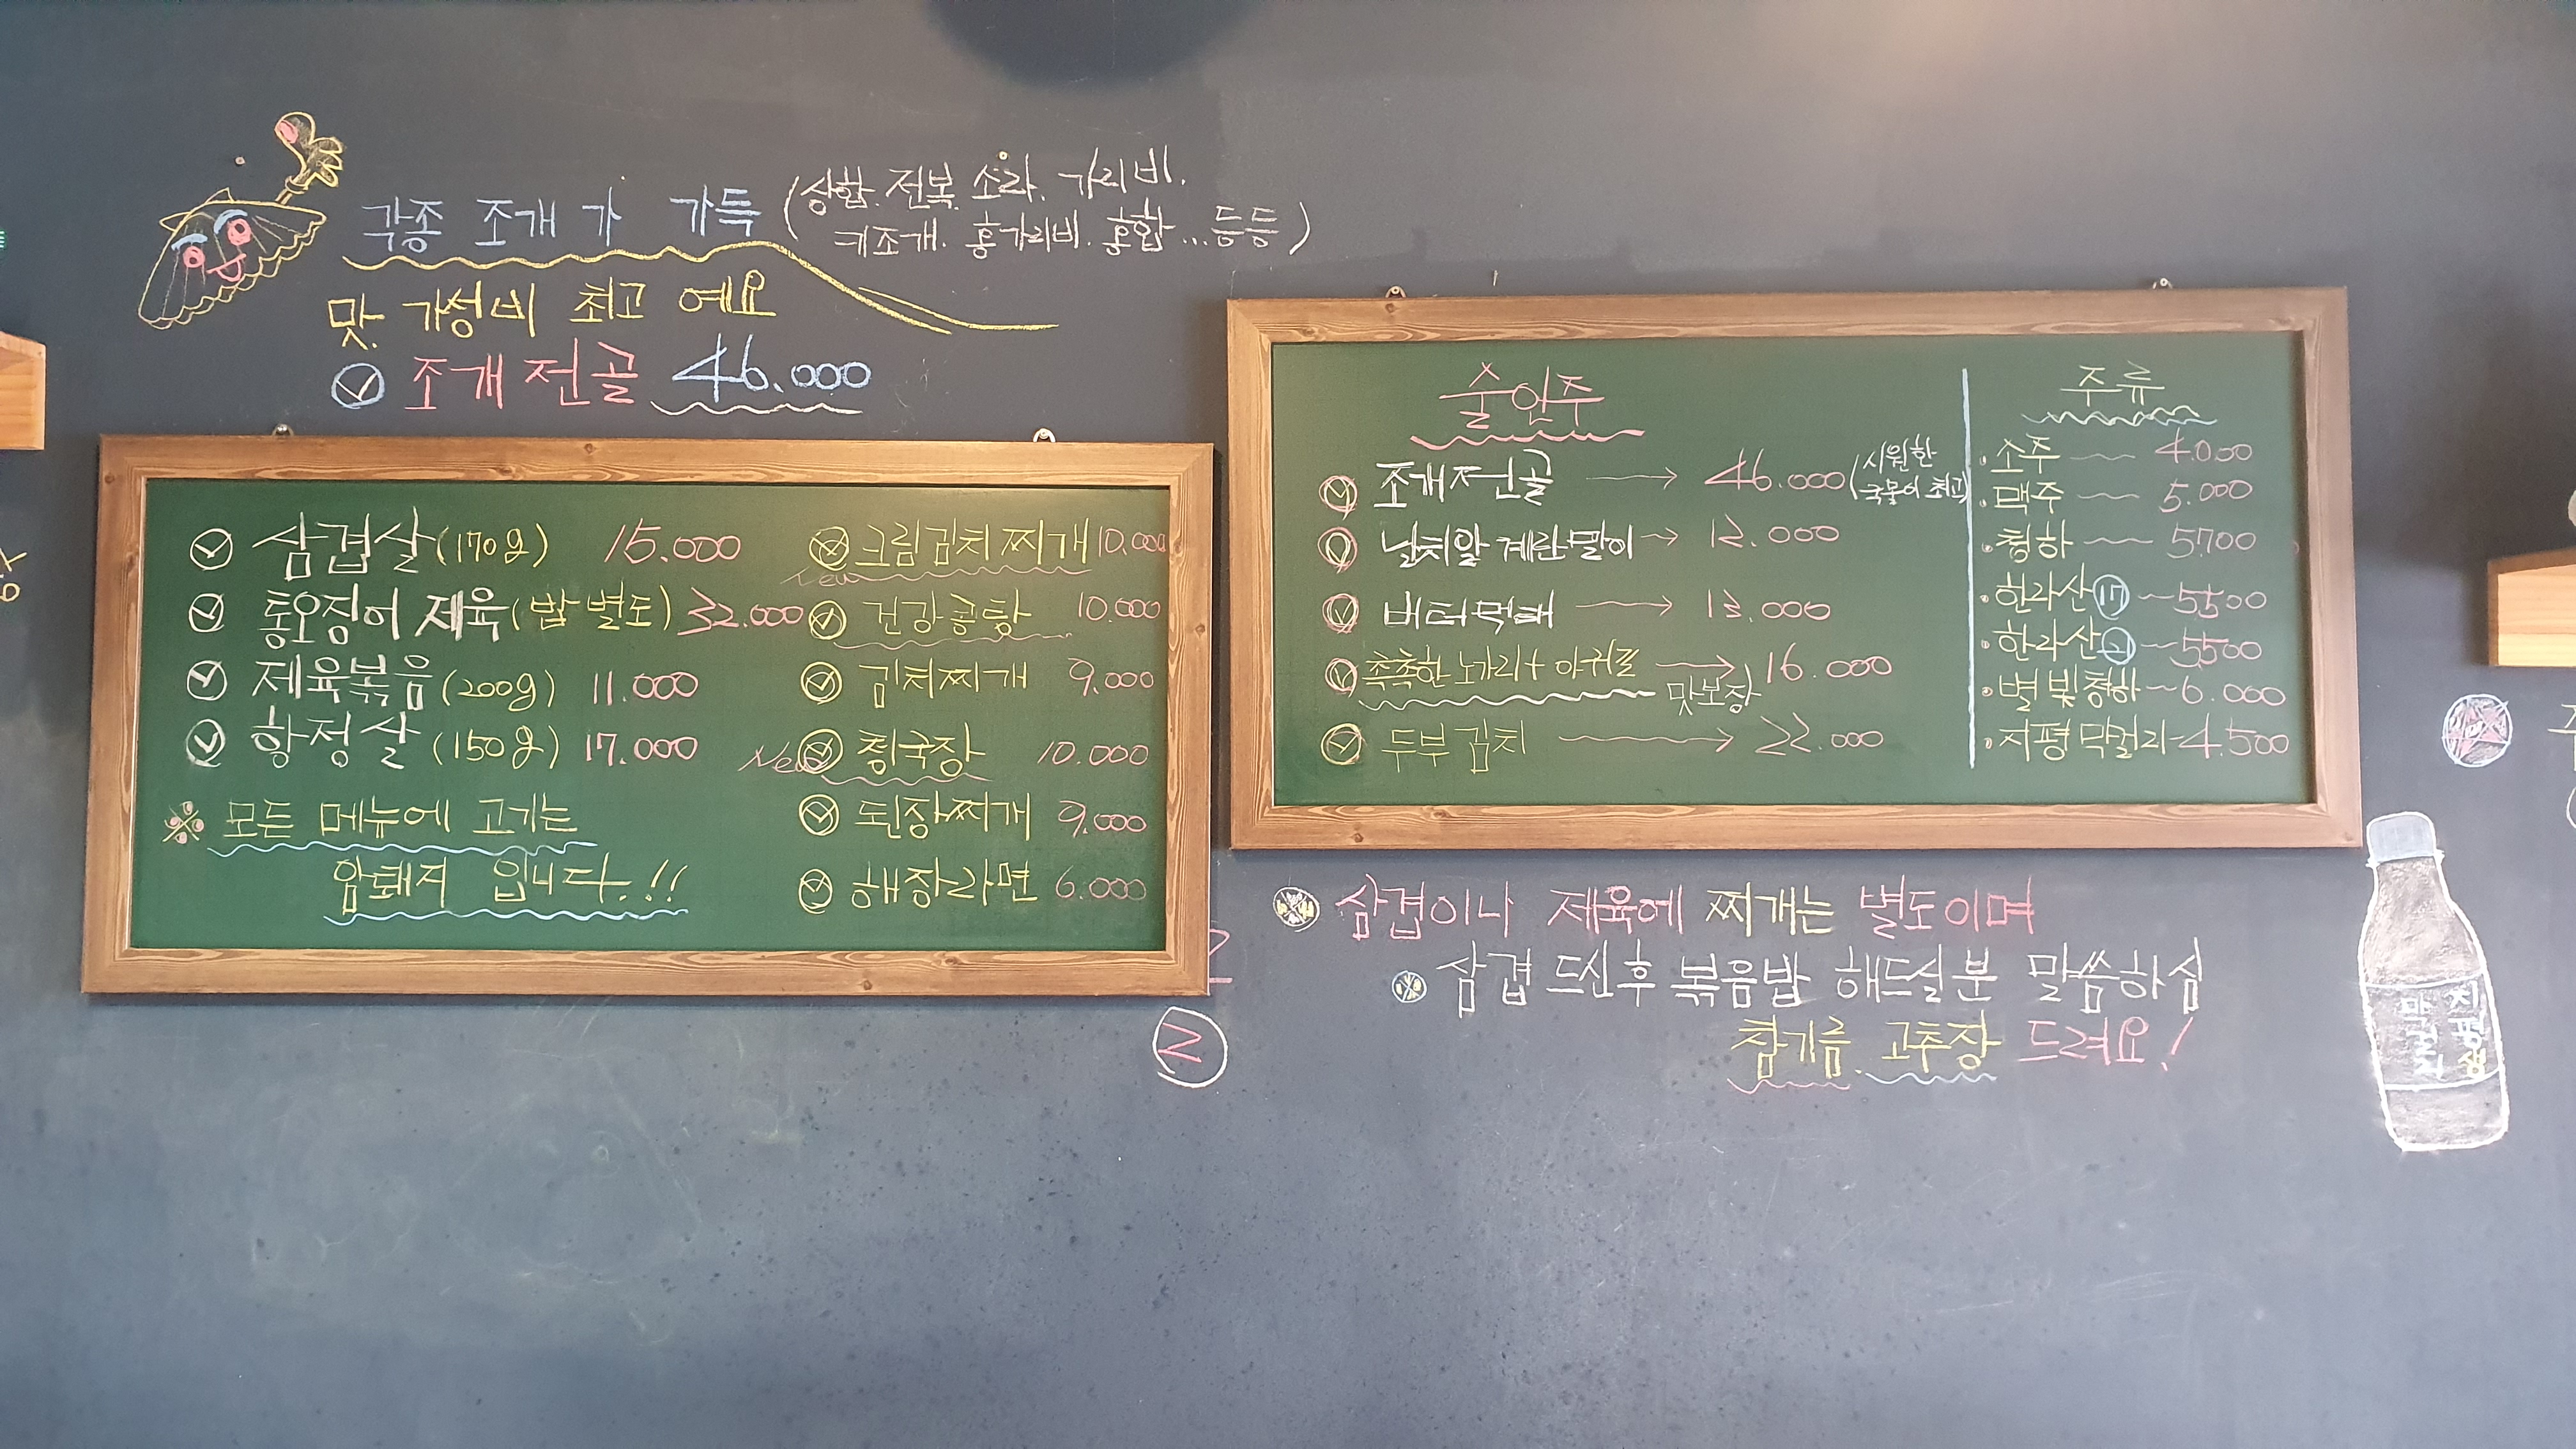 각종 조개가 가득 (상합. 전복. 소라. 가리비.
키조개. 홍가리비. 홍합... 등등)
맛. 가성비 최고 예요
조개전골 46.000
삼겹살 (170g) 15.000
통오징어 제육 (밥 별도) 32.000
제육볶음 (200g) 11.000
항정살 (150g) 17.000
※ 모든 메뉴에 고기는
암퇘지 입니다.!!
크림김치찌개 10.000
New 건강콩탕 10.000
김치찌개 9.000
New 청국장 10.000
된장찌개 9.000
해장라면 6.000
2
술안주
조개전골 → 46.000 (시원한
국물이 최고)
날치알 계란말이 → 12.000
버터먹태 → 13.000
촉촉한 노가리+아귀포 → 16.000
맛보장
두부김치 → 22.000
주류
·소주 ~ 4.000
·맥주 ~ 5.000
·청하 ~ 5700
·한라산 17 ~ 5500
·한라산 21 ~ 5500
·별빛청하 ~ 6.000
·지평막걸리 - 4.500
삼겹이나 제육에 찌개는 별도이며
삼겹 드신후 볶음밥 해드실분 말씀하심
참기름. 고추장 드려요!
지평생
막걸리